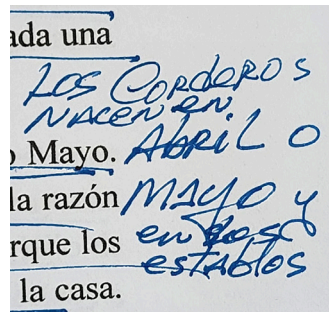 ada una
LOS CORDEROS
NACEN EN
o Mayo. ABRIL O
la razón MAYO y
rque los en los
ESTABLOS
la casa.